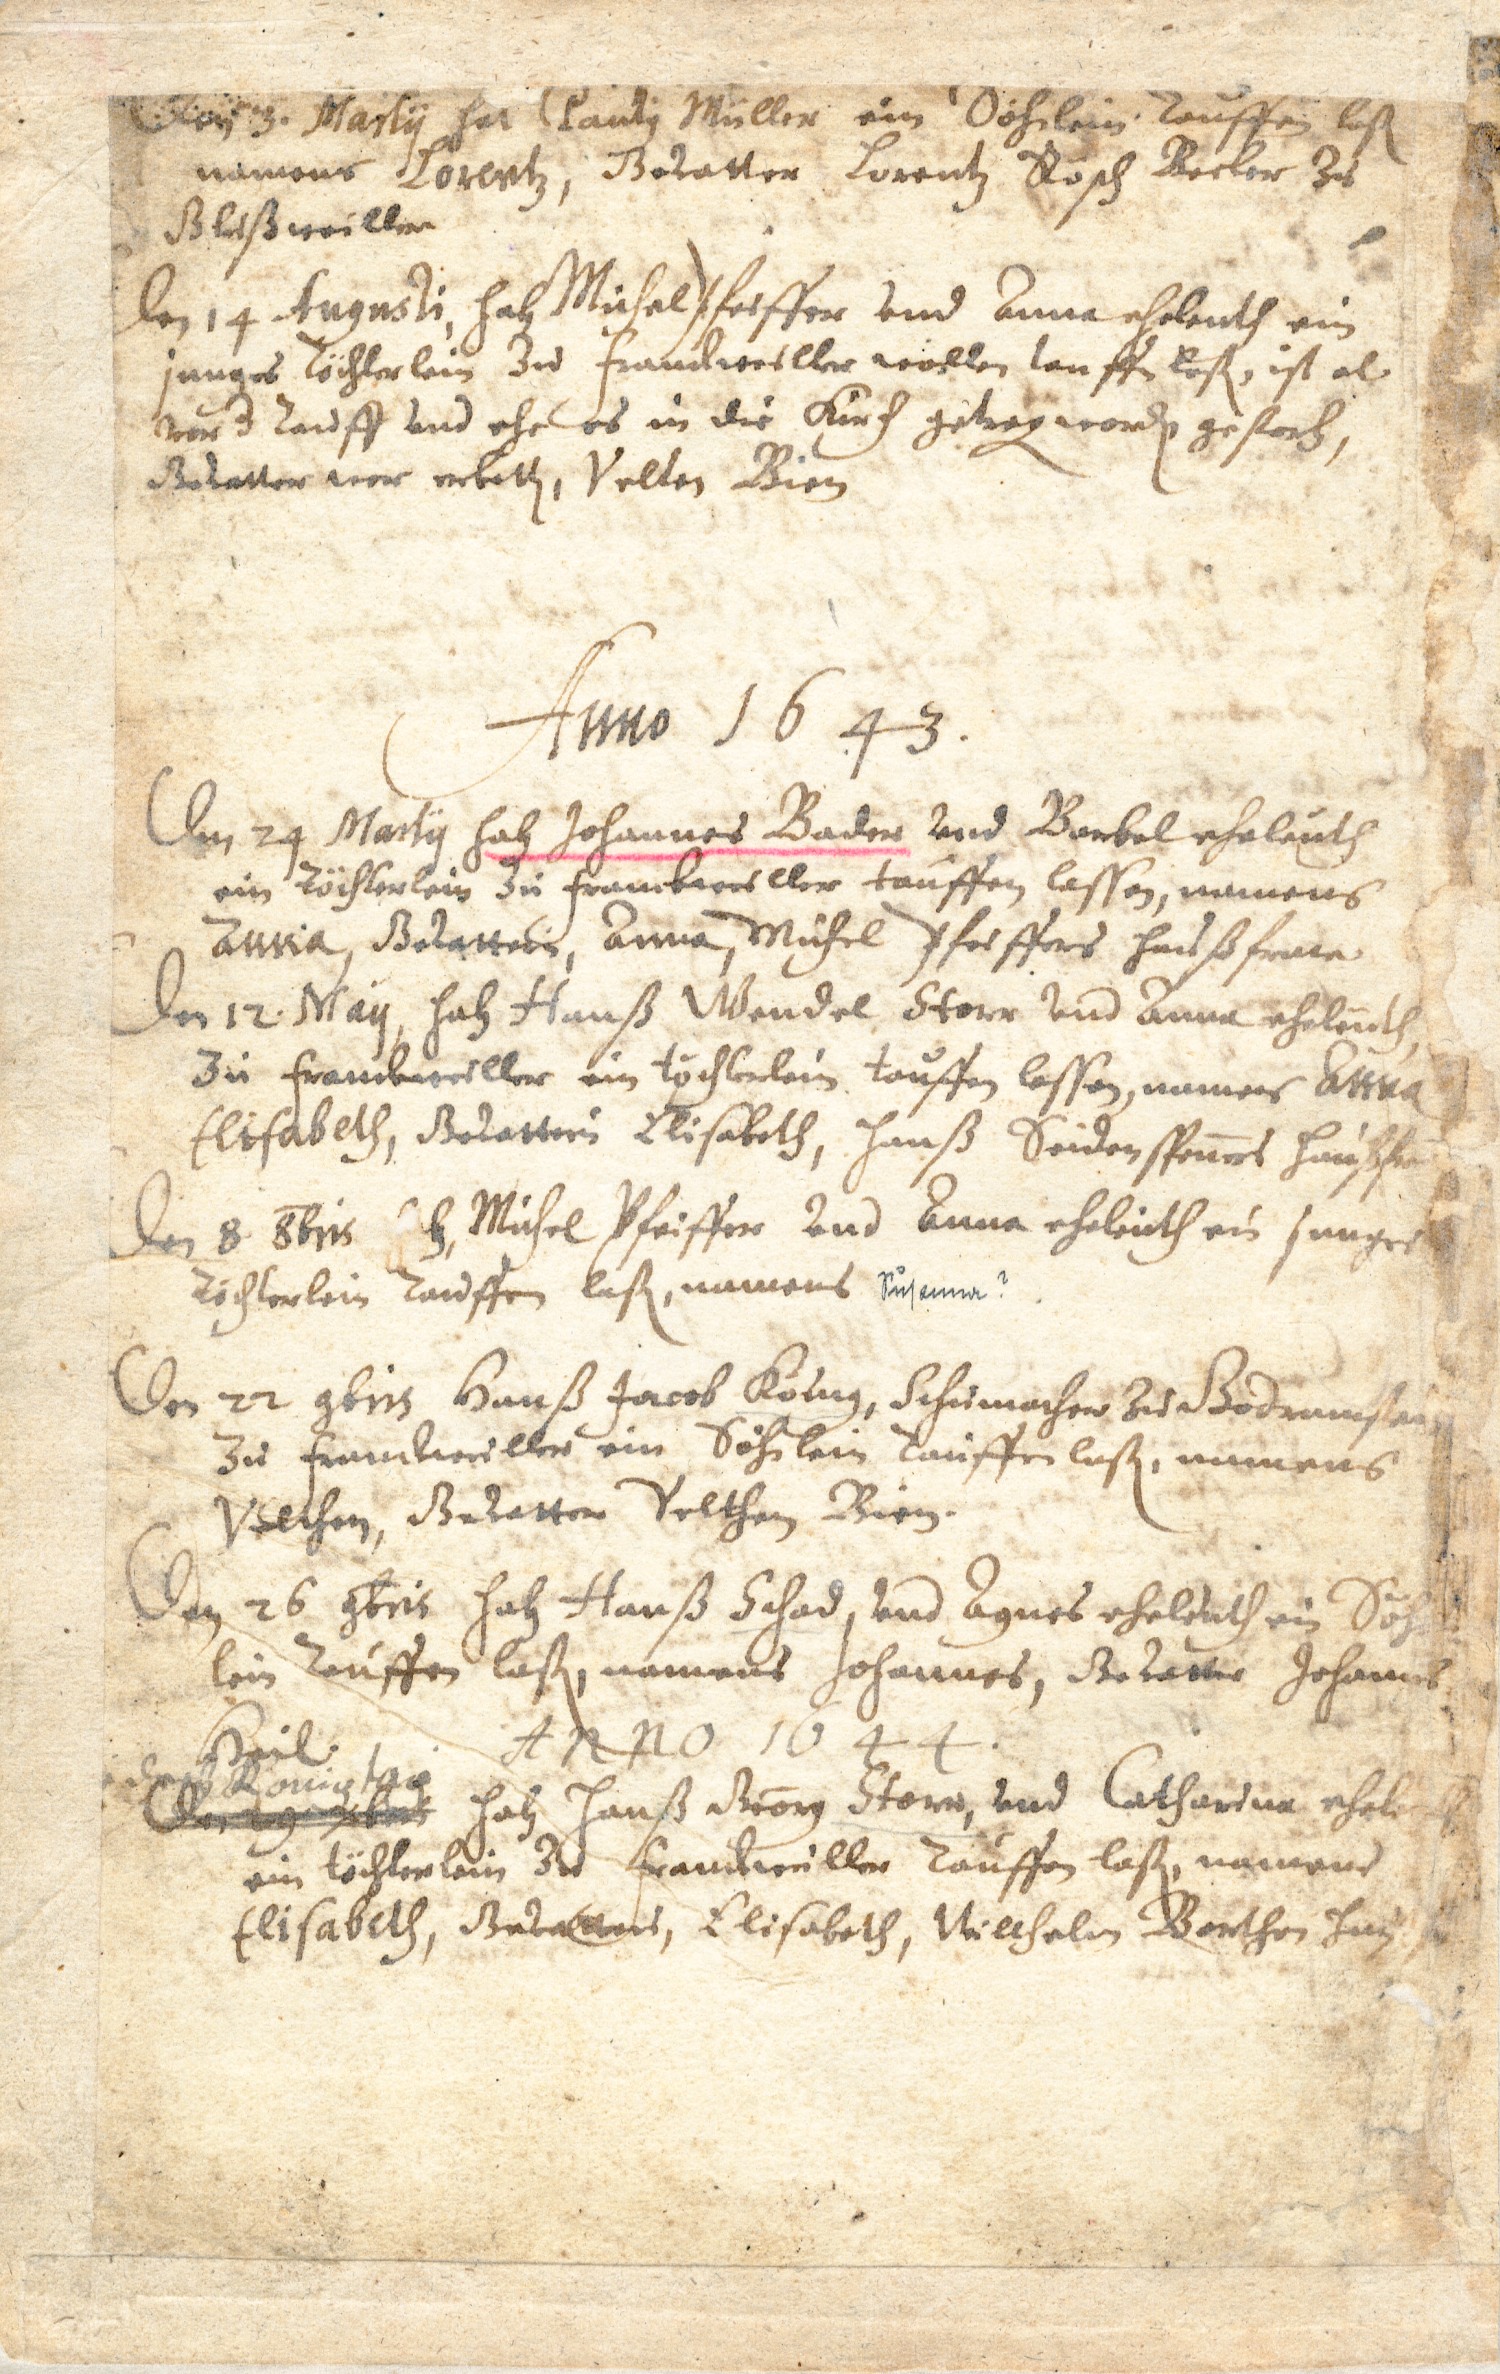 Den 3. Martÿ hat Claudÿ Müller ein Söhnlein tauffen laß
namens Lorentz, Gevatter Lorentz Rösch Becker zu
Bleßweiller
Den 14 Augusti, hatt Michel Pfeiffer und Anna eheleuth ein
junges töchterlein zu franckweiller wollen tauffen laß, ist al
vor d tauff und ehe es in die Kirch getrag wordn gestorb,
Gevatter war erbett, Velten Bien
Anno 1643.
Den 24 Martÿ hatt Johannes Bader und Barbel eheleuth
ein töchterlein zu franckweiller tauffen lassen, namens
Anna, Gevatterin, Anna, Michel Pfeiffers haußfraw
Den 12. Maÿ, hatt Hanß Wendel Storr und Anna eheleuth,
zu franckweiller ein töchterlein tauffen lassen, namens Anna
Elisabeth, Gevatterin Elisabeth, Hanß haußfr
Den 8 8bris Michel Pfeiffer und Anna eheleuth ein junges
töchterlein tauffen laß, namens Susanna?
Den 22 9bris Hanß Jacob König, Schumacher zu Godramstein
zu franckweiller ein Söhnlein tauffen laß, namens
Velthen, Gevatter Velthen Bien.
Den 26 9bris hatt Hanß Schad, und Agnes eheleuth ein Söhn
lein tauffen laß, namens Johannes, Gevatter Johannes
Keil.
ANNO 1644.
Königtag
hatt Hanß Georg Storr, und Catharina eheleuth
ein töchterlein zu franckweiller tauffen laß, namens
Elisabeth, Gevatterin, Elisabeth, Wilthelm Barthen